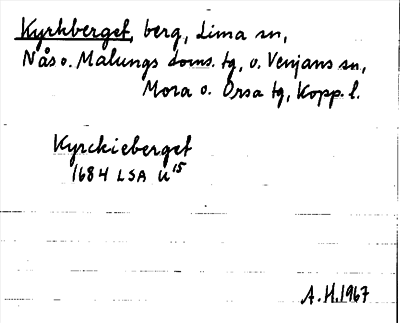 Kyrkberget, berg, Lima sn,
Nås o. Malungs doms. tg, o. Venjans sn,
Mora o. Orsa tg, Kopp. l.
Kyrckieberget
1684 LSA U 15
A.H. 1967